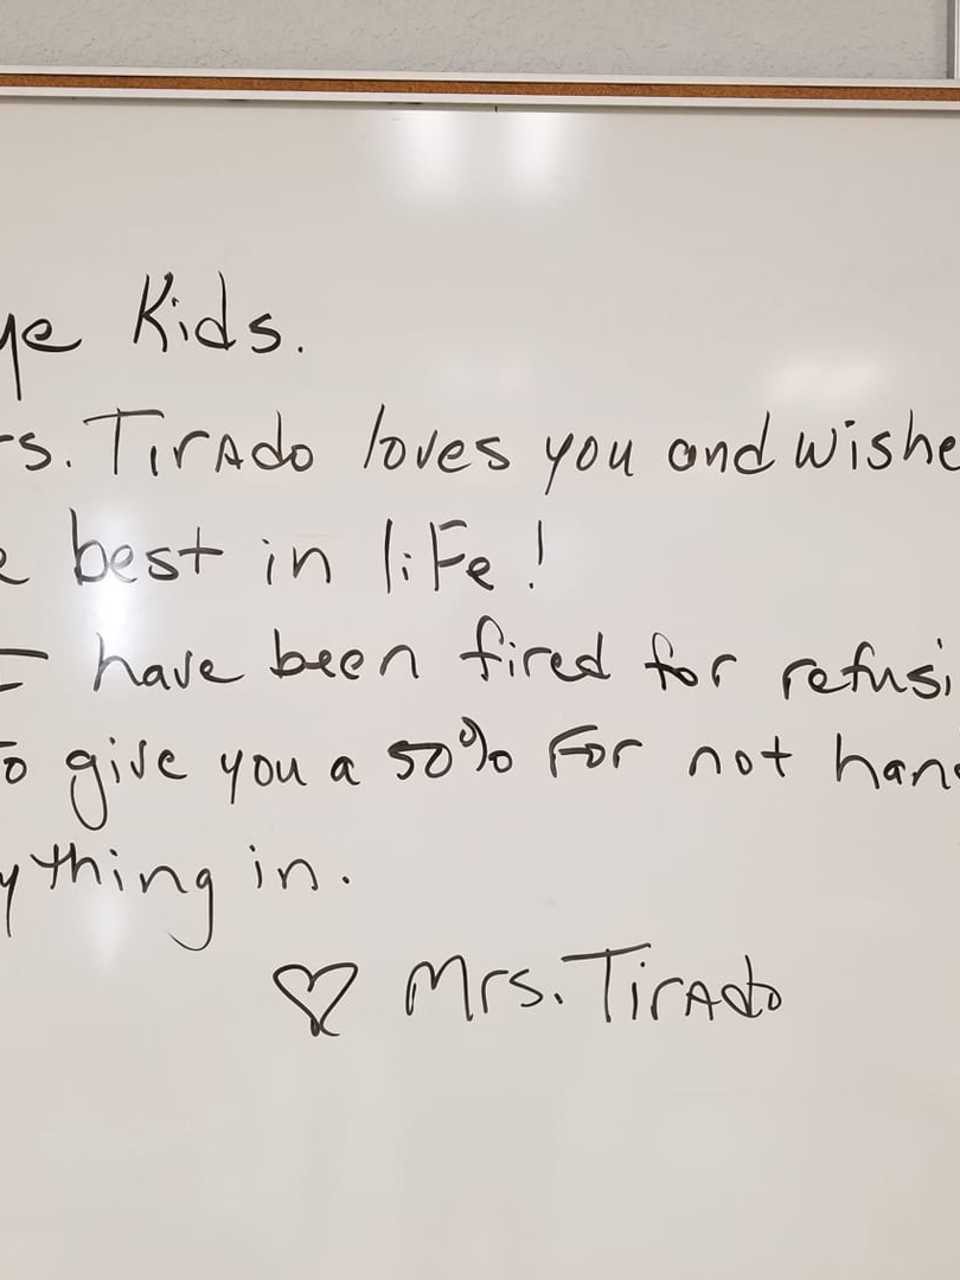 ye Kids.
rs. Tirado loves you and wishe
e best in life!
I have been fired for refusi
to give you a 50% for not han
ything in.
♡ Mrs. Tirado